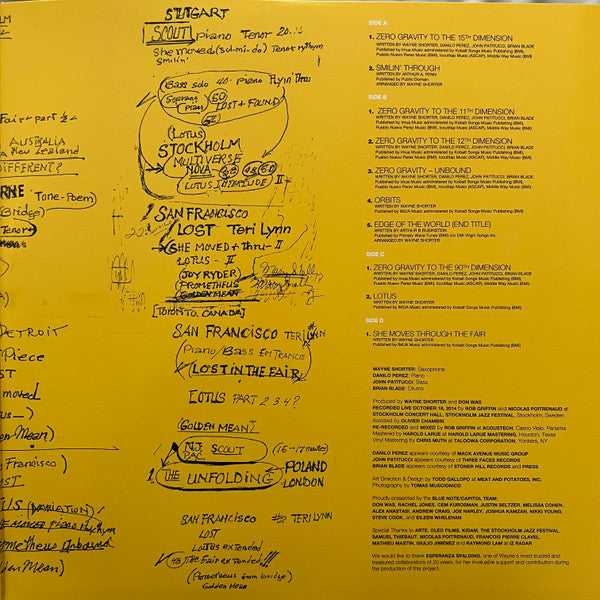 LM
Fair - part ½
AUSTRALIA
New Zealand
DIFFERENT?
RNE Tone-Poem
Bridge)
Tenor
DETROIT
Piece
ST
moved
us —)
en Mean)
Francisco)
ST
US (VARIATION)
piano rhythm
ometheus Unbound
den Mean)
STUTGART
SCOUT piano Tenor 20..
she moved (sol-mi-do) Tenor rythym
Smilin'
Bass solo 40. piano Flyin' Thru
Soprano Piano 50 LOST & FOUND
(LOTUS)
STOCKHOLM
MULTIVERSE
NOVA
LOTUS INTERLUDE II
SAN FRANCISCO
LOST Teri Lynn
SHE MOVED + Thru - II
LOTUS - II
JOY RYDER
PROMETHEUS
GOLDEN MEAN
[TORONTO, CANADA]
SAN FRANCISCO TERI LYNN
Piano/Bass ENTRANCE
LOST IN THE FAIR
LOTUS PART 2 3 4?
(GOLDEN MEAN)
N.J. PAC. SCOUT (15-17 minutes)
THE UNFOLDING POLAND
LONDON
SAN FRANCISCO #2 TERI LYNN
LOST
Lotus extended
The Fair extended!!!
(Prometheus from bridge)
Golden Mean
SIDE A
1. ZERO GRAVITY TO THE 15TH DIMENSION
WRITTEN BY WAYNE SHORTER, DANILO PEREZ, JOHN PATITUCCI, BRIAN BLADE
Published by Imua Music administered by Kobalt Songs Music Publishing (BMI),
Pueblo Nuevo Panel Music (BMI), Iccuttap Music (ASCAP), Middle Way Music (BMI)
2. SMILIN' THROUGH
WRITTEN BY ARTHUR A. PENN
Published by Public Domain
ARRANGED BY WAYNE SHORTER
SIDE B
1. ZERO GRAVITY TO THE 11TH DIMENSION
WRITTEN BY WAYNE SHORTER, DANILO PEREZ, JOHN PATITUCCI, BRIAN BLADE
Published by Imua Music administered by Kobalt Songs Music Publishing (BMI),
Pueblo Nuevo Panel Music (BMI), Iccuttap Music (ASCAP), Middle Way Music (BMI)
2. ZERO GRAVITY TO THE 12TH DIMENSION
WRITTEN BY WAYNE SHORTER, DANILO PEREZ, JOHN PATITUCCI, BRIAN BLADE
Published by Imua Music administered by Kobalt Songs Music Publishing (BMI),
Pueblo Nuevo Panel Music (BMI), Iccuttap Music (ASCAP), Middle Way Music (BMI)
3. ZERO GRAVITY – UNBOUND
WRITTEN BY WAYNE SHORTER, DANILO PEREZ, JOHN PATITUCCI, BRIAN BLADE
Published by Imua Music administered by Kobalt Songs Music Publishing (BMI),
Pueblo Nuevo Panel Music (BMI), Iccuttap Music (ASCAP), Middle Way Music (BMI)
4. ORBITS
WRITTEN BY WAYNE SHORTER
Published by IMUA Music administered by Kobalt Songs Music Publishing (BMI)
5. EDGE OF THE WORLD (END TITLE)
WRITTEN BY ARTHUR B RUBINSTEIN
Published by Primary Wave Tunes (BMI) c/o EMI Virgin Songs Inc.
ARRANGED BY WAYNE SHORTER
SIDE C
1. ZERO GRAVITY TO THE 90TH DIMENSION
WRITTEN BY WAYNE SHORTER, DANILO PEREZ, JOHN PATITUCCI, BRIAN BLADE
Published by Imua Music administered by Kobalt Songs Music Publishing (BMI),
Pueblo Nuevo Panel Music (BMI), Iccuttap Music (ASCAP), Middle Way Music (BMI)
2. LOTUS
WRITTEN BY WAYNE SHORTER
Published by IMUA Music administered by Kobalt Songs Music Publishing (BMI)
SIDE D
1. SHE MOVES THROUGH THE FAIR
WRITTEN BY WAYNE SHORTER
Published by IMUA Music administered by Kobalt Songs Music Publishing (BMI)
WAYNE SHORTER: Saxophone
DANILO PEREZ: Piano
JOHN PATITUCCI: Bass
BRIAN BLADE: Drums
Produced by WAYNE SHORTER and DON WAS
RECORDED LIVE OCTOBER 18, 2014 by ROB GRIFFIN and NICOLAS POITRENAUD at
STOCKHOLM CONCERT HALL, STOCKHOLM JAZZ FESTIVAL, Stockholm, Sweden
Assisted by OLIVIER CHAMBIN
RE-RECORDED and MIXED by ROB GRIFFIN at ACOUSTECH, Casco Viejo, Panama
Mastered by HAROLD LARUE at HAROLD LARUE MASTERING, Houston, Texas
Vinyl Mastering by CHRIS MUTH at TALOOWA CORPORATION, Yonkers, NY
DANILO PEREZ appears courtesy of MACK AVENUE MUSIC GROUP
JOHN PATITUCCI appears courtesy of THREE FACES RECORDS
BRIAN BLADE appears courtesy of STONER HILL RECORDS and PRESS
Art Direction & Design by TODD GALLOPO @ MEAT AND POTATOES, INC.
Photography by TOMAS MUSCIONICO
Proudly presented by the BLUE NOTE/CAPITOL TEAM:
DON WAS, RACHEL JONES, CEM KUROSMAN, JUSTIN SELTZER, MELISSA COHEN,
ALEX ANASTASI, ANDREW CRAIG, JOE HARLEY, JOSHUA KAMZAN, NIKKI YOUNG,
STEVE COOK, and EILEEN WHELEHAN
Special Thanks to ARTE, OLEO FILMS, KIDAM, THE STOCKHOLM JAZZ FESTIVAL,
SAMUEL THIEBAUT, NICOLAS POITRENAUD, FRANCOIS PIERRE CLAVEL,
MATHIEU MASTIN, GIULIO JIMENEZ and RAYMOND LAM at IZ RADAR
We would like to thank ESPERANZA SPALDING, one of Wayne's most trusted and
treasured collaborators of 20 years, for her invaluable support and contribution during
the production of this project.